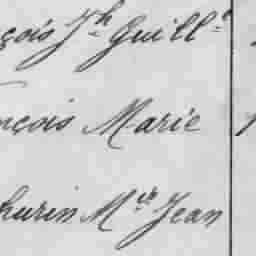 çois Jh Guille
nçois Marie
hurin Mie Jean